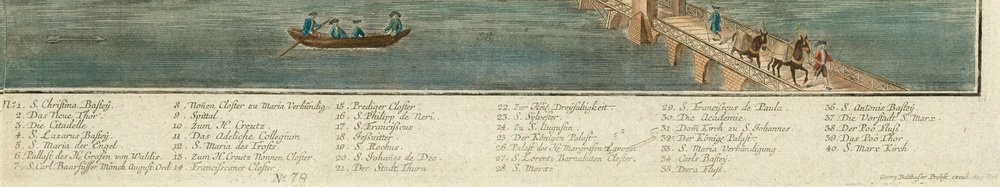 N.o 1. S. Christina Bastey.
2. Das Neue Thor.
3. Die Citadelle.
4. S. Lazarus Bastey.
5. S. Maria der Engel.
6. Pallast des H. Grafen von Waldis.
7. S. Carl Baarfüsser Mönch August. Ord.
8. Noñen Closter zu Maria Verkündig.
9. Spittal.
10. Zum H. Creutz.
11. Das Adeliche Collegium
12. S. Maria des Trosts.
13. Zum H. Creutz Nonnen Closter.
14. Franciscaner Closter
15. Prediger Closter.
16. S. Philipp de Neri.
17. S. Franciscus.
18. Jesuitter
19. S. Rochus.
20. S. Johañes de Deo.
21. Der Stadt Thurn.
22. Zur Heil. Dreyfaltigkeit.
23. S. Sylvester.
24. Zu S. Augustin.
25. Der Königen Palast.
26. Palast des H. Margrafen
27. S. Lorentz Barnabitten Closter.
28. S. Moritz
29. S. Franciscus de Paula.
30. Die Academie.
31. Dom Kirch zu S. Johannes.
32. Der Könige Palast.
33. S. Maria Verkündigung.
34. Carls Bastey.
35. Dura Fluß.
36. S. Antonis Bastey.
37. Die Vorstadt S. Marx.
38. Der Poo Fluß.
39. Das Poo Thor.
40. S. Marx Kirch.
No. 78
Georg Balthasar Probst, excud.